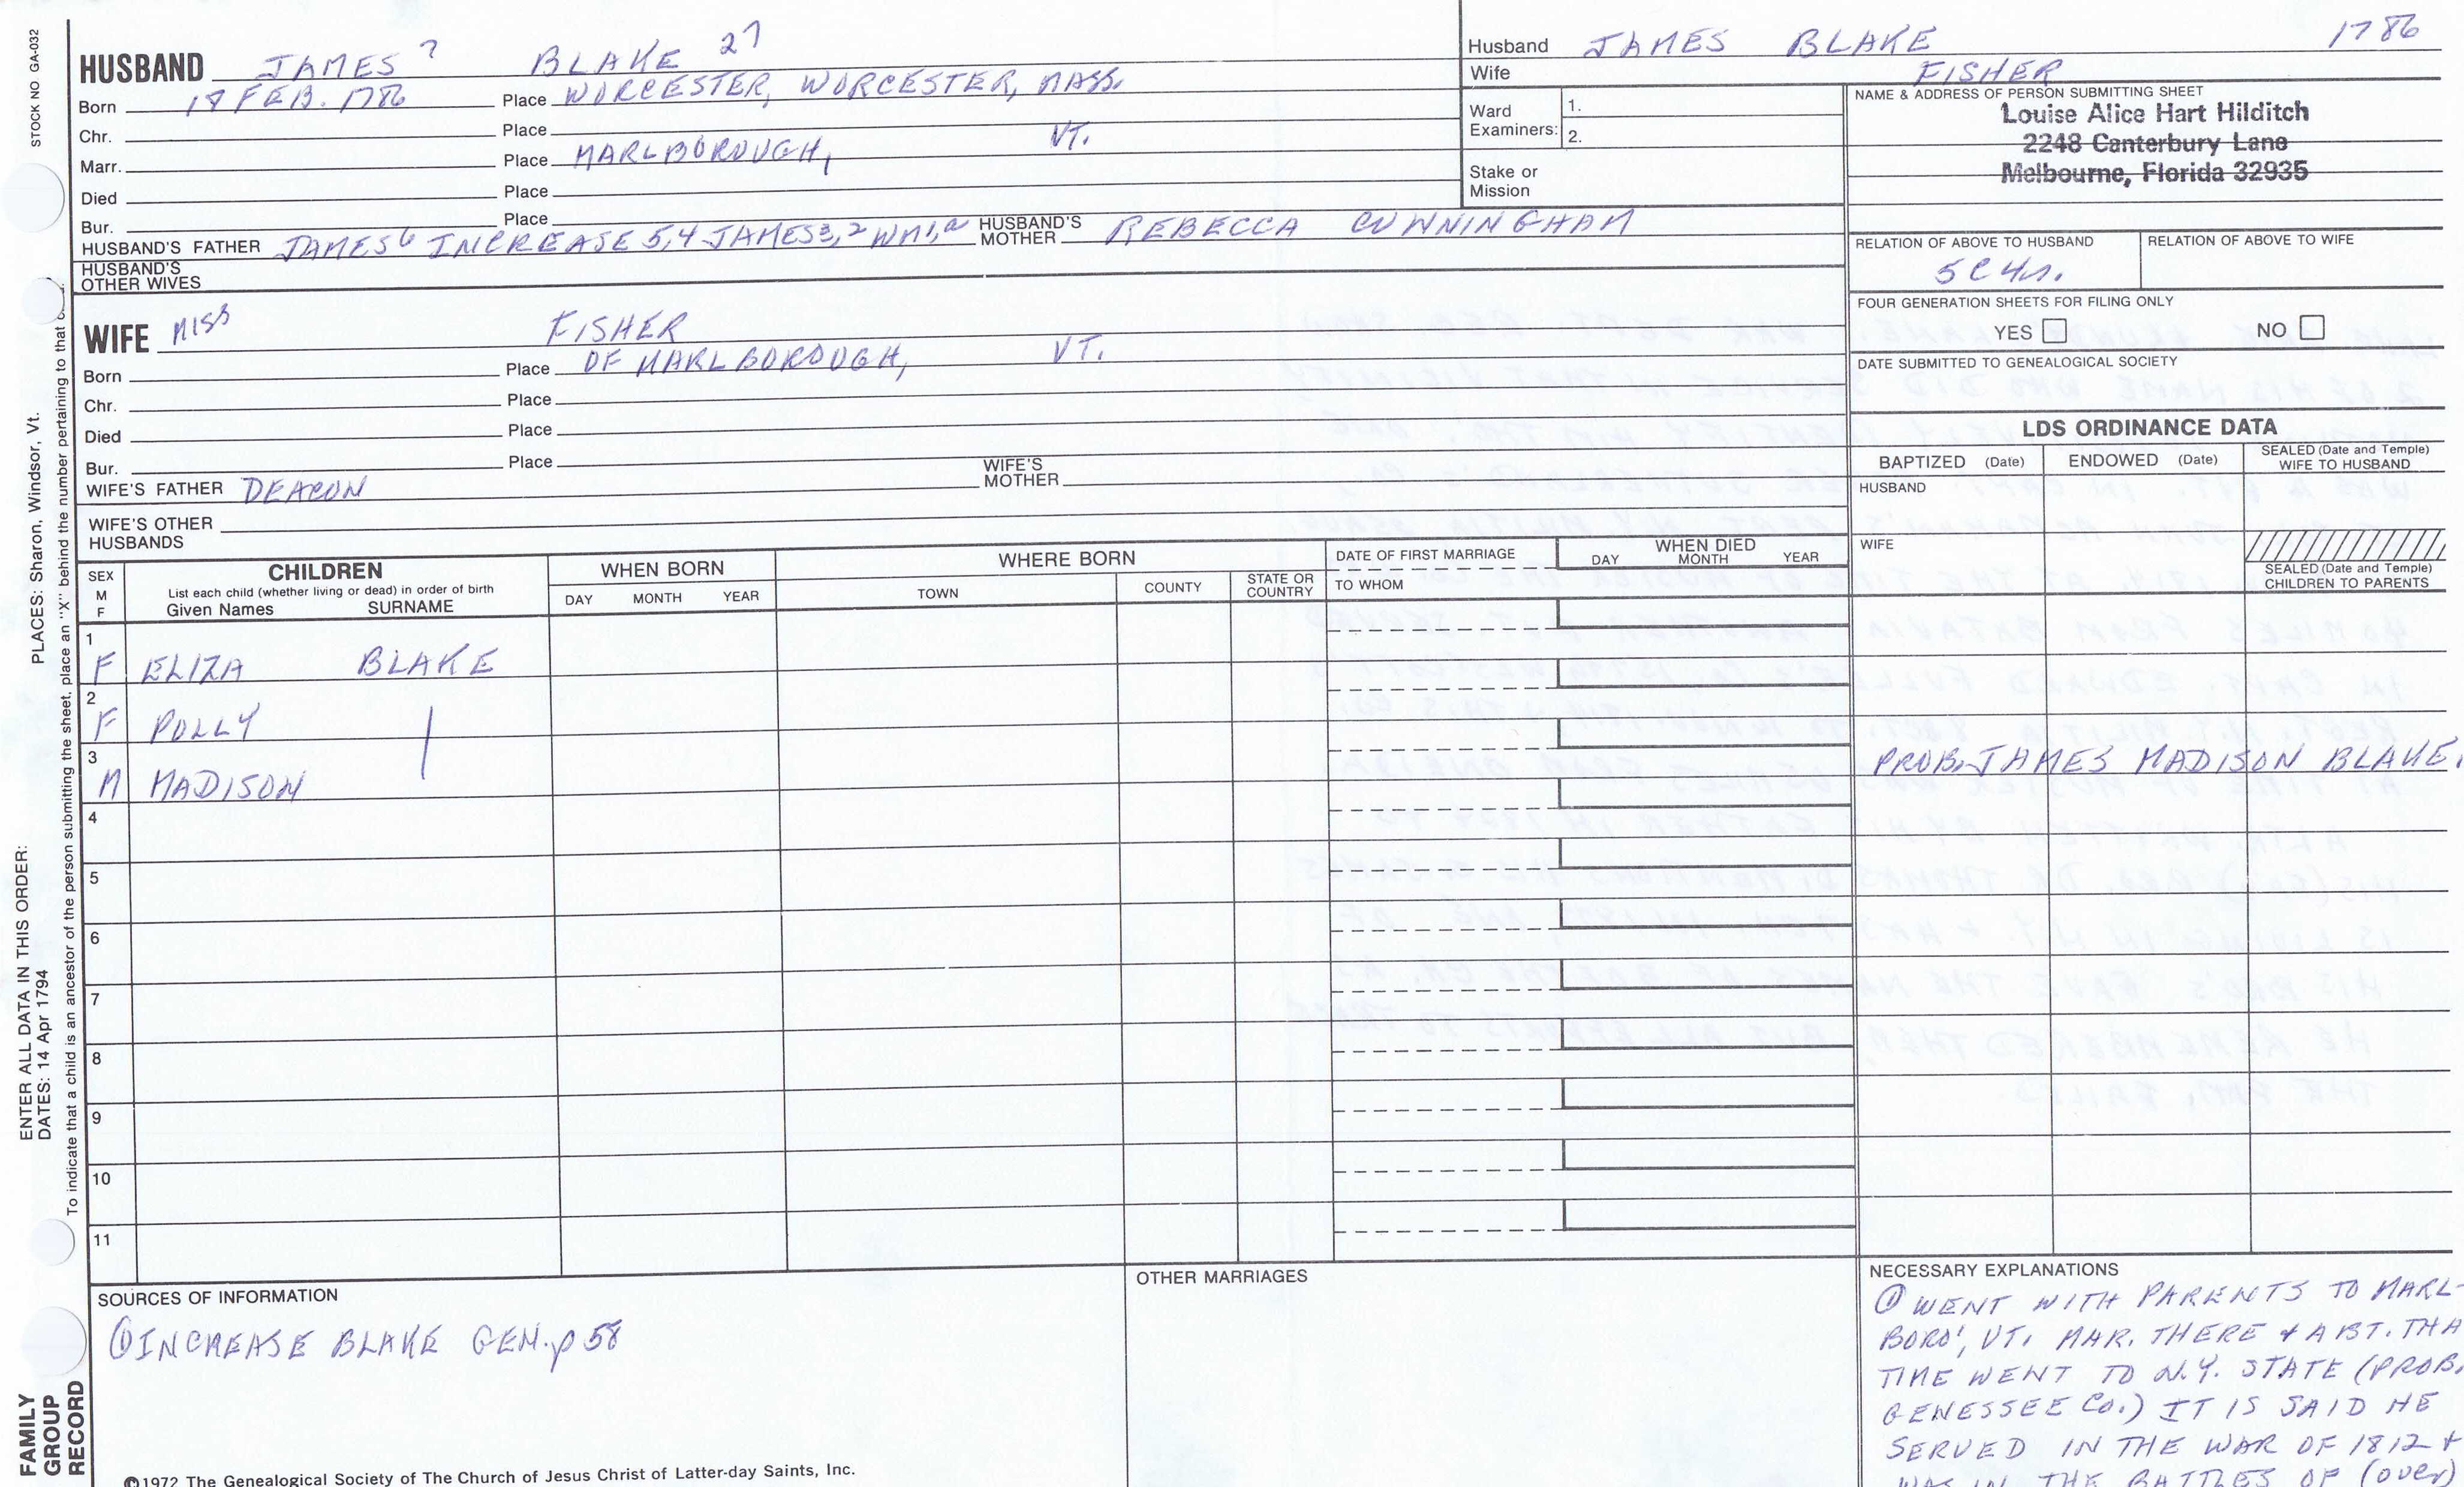 STOCK NO GA-032
PLACES: Sharon, Windsor, Vt.
ENTER ALL DATA IN THIS ORDER:
DATES: 14 Apr 1794
To indicate that a child is an ancestor of the person submitting the sheet, place an "X" behind the number pertaining to that
FAMILY
GROUP
RECORD
HUSBAND JAMES 7 BLAKE 27
Born 18 FEB. 1786 Place WORCESTER, WORCESTER, MASS.
Chr. Place
Marr. Place MARLBOROUGH, VT.
Died Place
Bur. Place
HUSBAND'S FATHER JAMES6 INCREASE 5,4 JAMES3,2 WM1,a HUSBAND'S MOTHER REBECCA CUNNINGHAM
HUSBAND'S
OTHER WIVES
WIFE MISS FISHER
Born Place OF MARLBOROUGH, VT.
Chr. Place
Died Place
Bur. Place
WIFE'S FATHER DEACON WIFE'S MOTHER
WIFE'S OTHER
HUSBANDS
Husband JAMES BLAKE 1786
Wife FISHER
Ward
Examiners:
1.
2.
Stake or
Mission
NAME & ADDRESS OF PERSON SUBMITTING SHEET
Louise Alice Hart Hilditch
2248 Canterbury Lane
Melbourne, Florida 32935
RELATION OF ABOVE TO HUSBAND
5C 4r.
RELATION OF ABOVE TO WIFE
FOUR GENERATION SHEETS FOR FILING ONLY
YES NO
DATE SUBMITTED TO GENEALOGICAL SOCIETY
LDS ORDINANCE DATA
BAPTIZED (Date) ENDOWED (Date) SEALED (Date and Temple)
WIFE TO HUSBAND
HUSBAND
WIFE
SEALED (Date and Temple)
CHILDREN TO PARENTS
SEX
M
F
CHILDREN
List each child (whether living or dead) in order of birth
Given Names SURNAME
WHEN BORN
DAY MONTH YEAR
WHERE BORN
TOWN COUNTY STATE OR
COUNTRY
DATE OF FIRST MARRIAGE
TO WHOM
WHEN DIED
DAY MONTH YEAR
1
F ELIZA BLAKE
2
F POLLY |
3
M MADISON PROB. JAMES MADISON BLAKE,
4
5
6
7
8
9
10
11
SOURCES OF INFORMATION
①INCREASE BLAKE GEN. p 58
OTHER MARRIAGES
NECESSARY EXPLANATIONS
① WENT WITH PARENTS TO MARL-
BORO', VT. MAR. THERE + ABT. THA
TIME WENT TO N.Y. STATE (PROB.
GENESSEE Co.) IT IS SAID HE
SERVED IN THE WAR OF 1812 +
WAS IN THE BATTLES OF (over)
©1972 The Genealogical Society of The Church of Jesus Christ of Latter-day Saints, Inc.